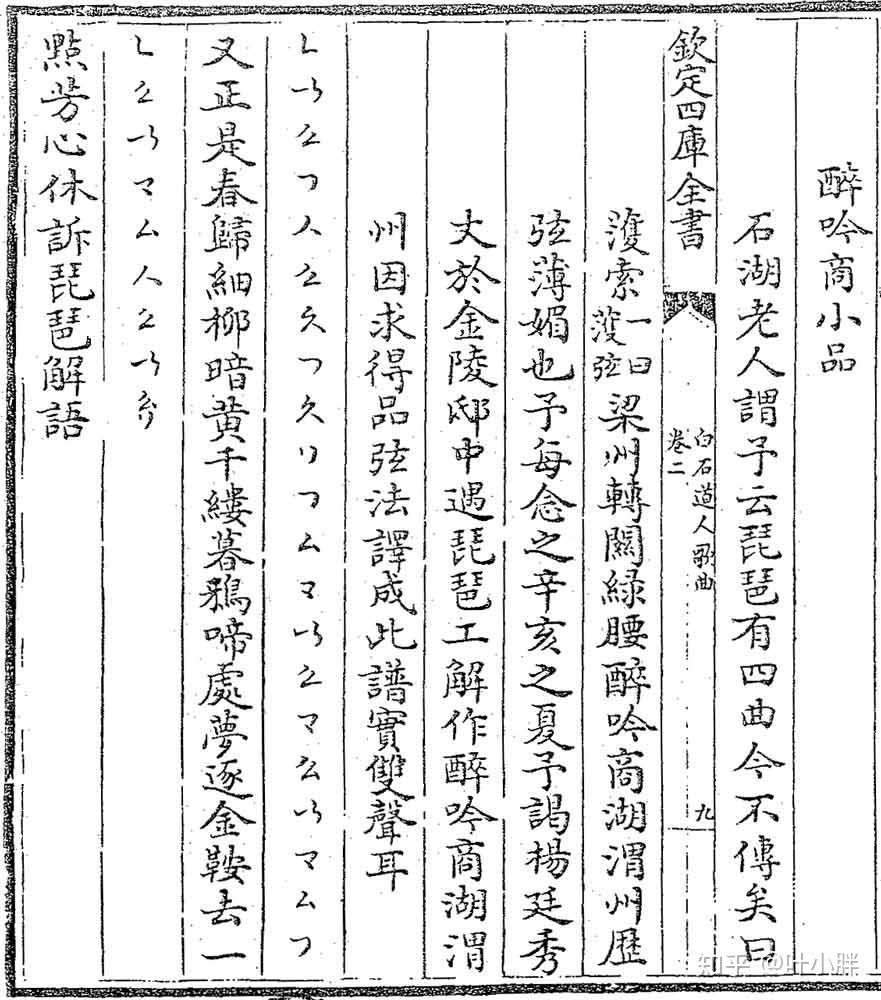 醉吟商小品
石湖老人謂予云琵琶有四曲今不傳矣曰
欽定四庫全書
白石道人歌曲
卷二
九
濩索一曰濩弦梁州轉關綠腰醉吟商湖渭州歷
弦薄媚也予每念之辛亥之夏予謁楊廷秀
丈於金陵邸中遇琵琶工解作醉吟商湖渭
州因求得品弦法譯成此譜實雙聲耳
又正是春歸細柳暗黃千縷暮鴉啼處夢逐金鞍去一
點芳心休訴琵琶解語
知乎 @叶小胖